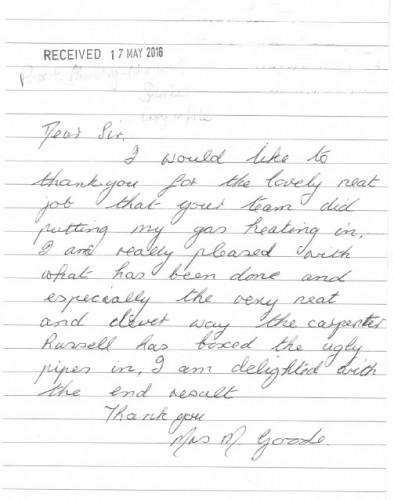 RECEIVED 17 MAY 2016
Dear Sir,
I would like to
thankyou for the lovely neat
job that your team did
putting my gas heating in.
I am really pleased with
what has been done and
especially the very neat
and clever way the carpenter
Russell has boxed the ugly
pipes in, I am delighted with
the end result
Thank you
Mrs M. Goode.